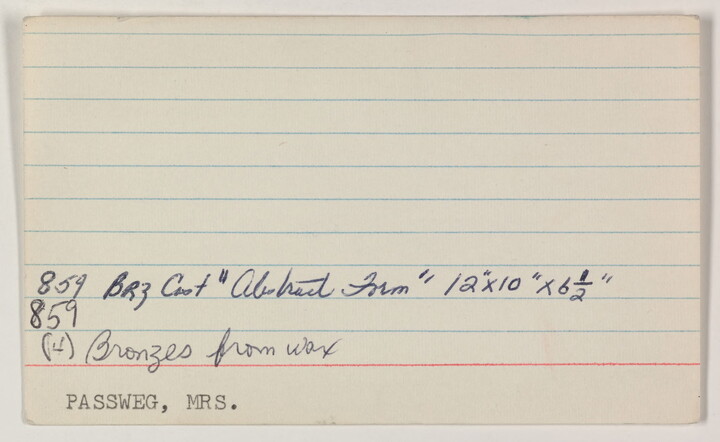 859 BRZ Cast "Abstract Form" 12"x10"x6½"
859
(4) Bronzes from wax
PASSWEG, MRS.